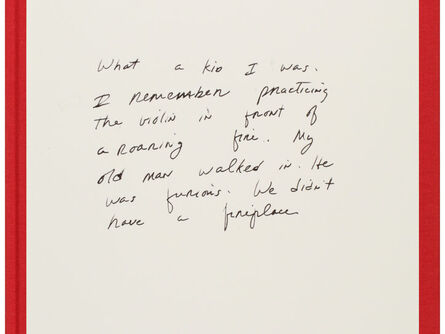 What a kid I was.
I remember practicing
the violin in front of
a roaring fire. My
old man walked in. He
was furious. We didn't
have a fireplace